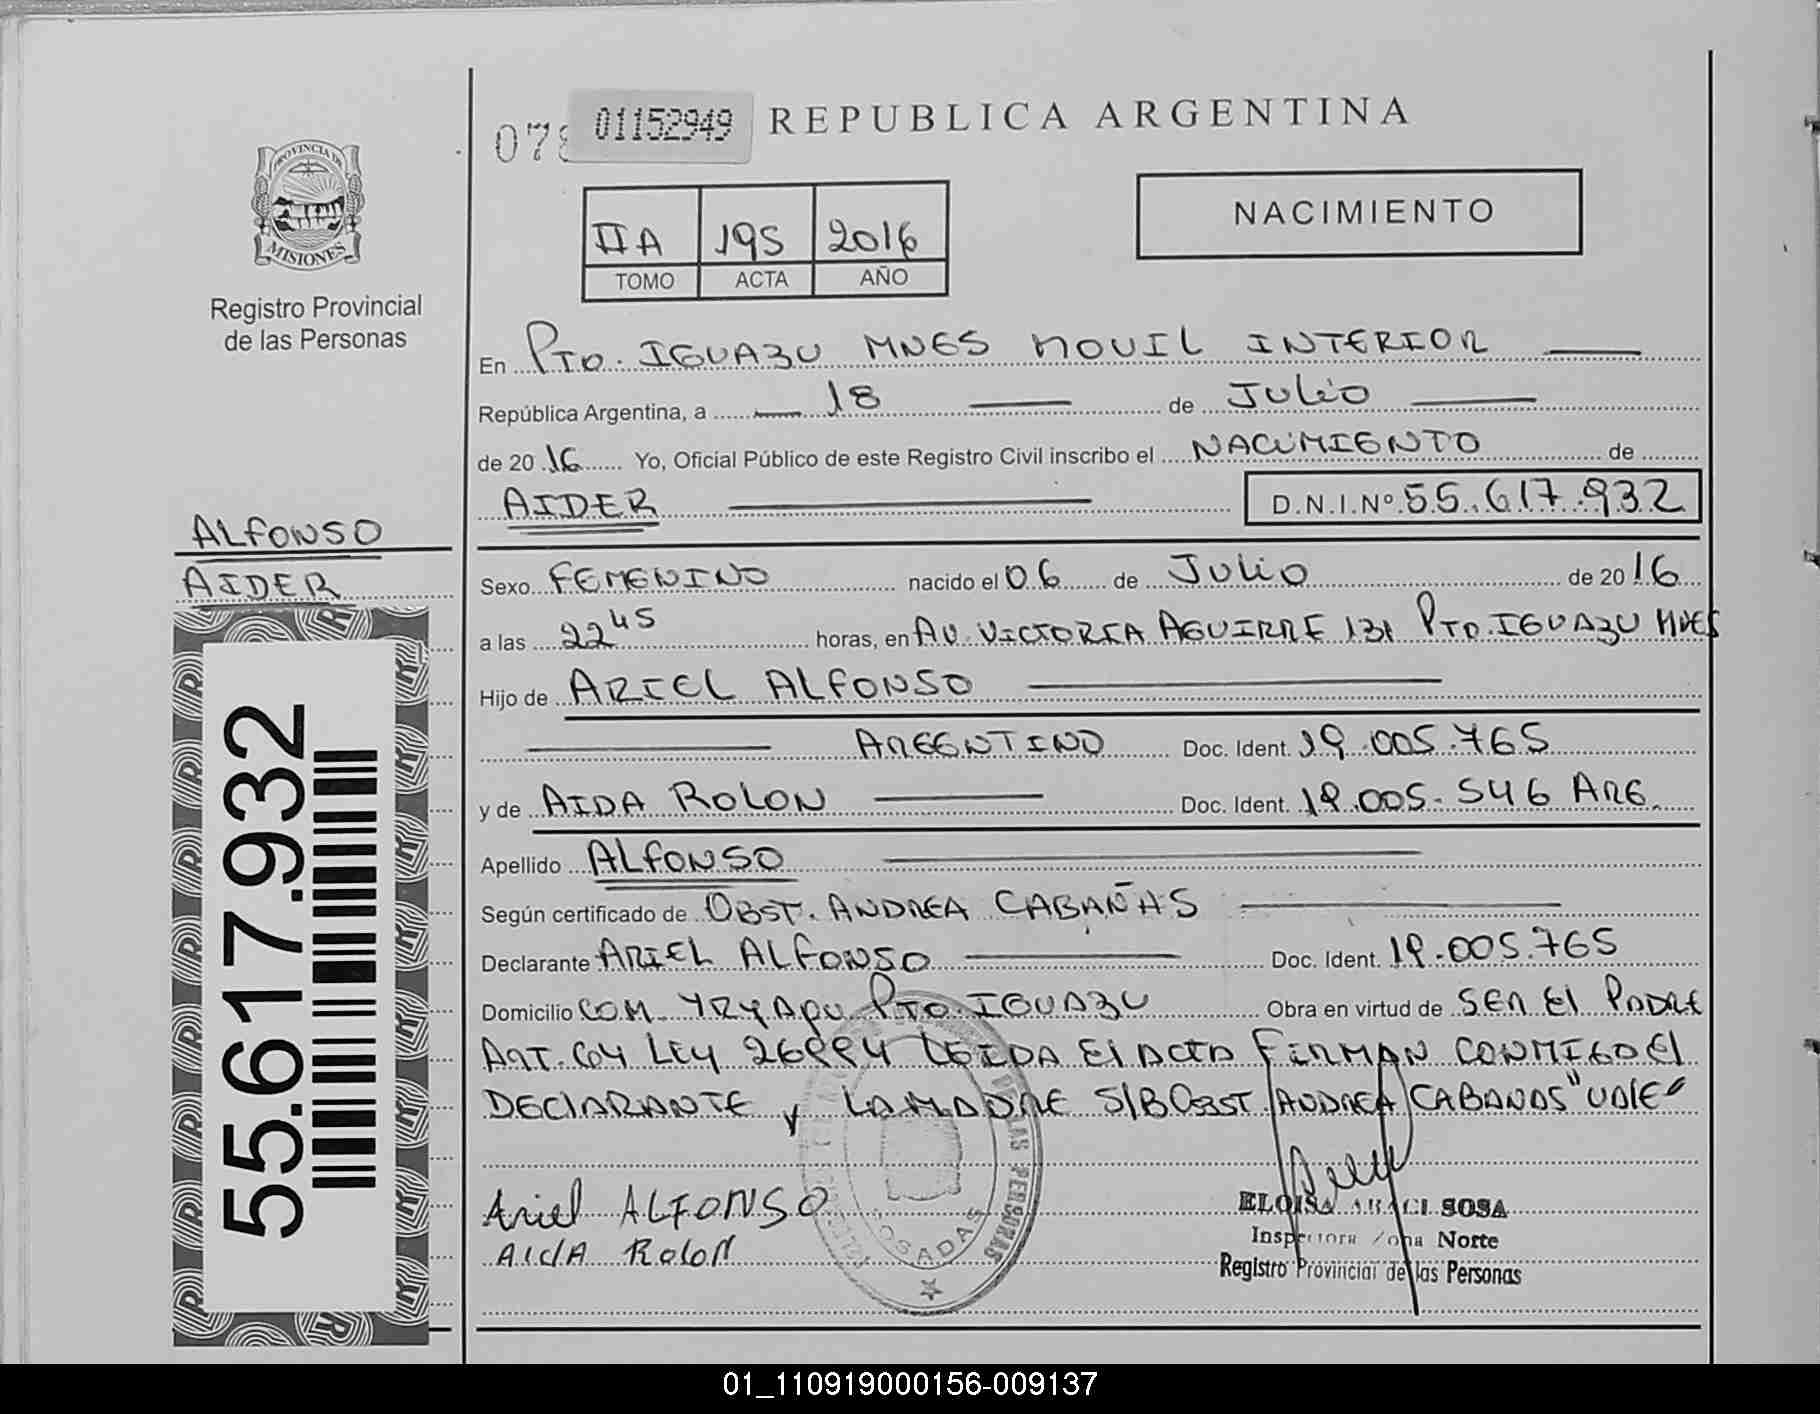 078 01152949 REPUBLICA ARGENTINA
PROVINCIA DE
MISIONES
Registro Provincial
de las Personas
IIA 195 2016
TOMO ACTA AÑO
NACIMIENTO
En PTO. IGUAZU MNES MOVIL INTERIOR
República Argentina, a 18 de JULIO
de 20 16 Yo, Oficial Público de este Registro Civil inscribo el NACIMIENTO de
AIDER D.N.I.Nº 55.617.932
ALFONSO
AIDER
55.617.932
Sexo FEMENINO nacido el 06 de JULIO de 20 16
a las 22 45 horas, en AV. VICTORIA AGUIRRE 131 PTO. IGUAZU MNES
Hijo de ARIEL ALFONSO
ARGENTINO Doc. Ident. 19.005.765
y de AIDA ROLON Doc. Ident. 19.005.546 ARG.
Apellido ALFONSO
Según certificado de OBST. ANDREA CABAÑAS
Declarante ARIEL ALFONSO Doc. Ident. 19.005.765
Domicilio COM. YRYAPU PTO. IGUAZU Obra en virtud de SER El PADRE
ART. 64 LEY 26994 LEIDA El ACTA FIRMAN CONMIGO El
DECLARANTE y LA MADRE S/B OBST. ANDREA CABANAS "VALE"
Ariel ALFONSO
AIdA RolON
LAS PERSONAS
POSADAS
ELOISA ARACI SOSA
Inspectora Zona Norte
Registro Provincial de las Personas
01_110919000156-009137